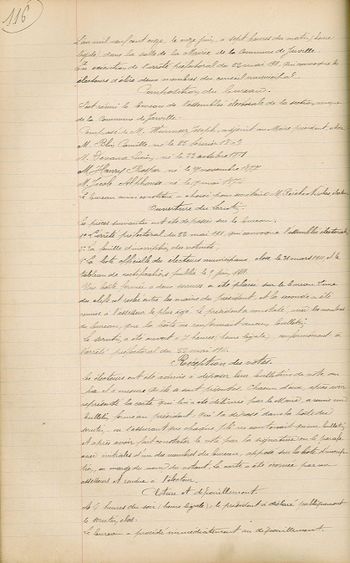 116
L'an mil neuf cent onze, le onze juin, à sept heures du matin (heure
légale), dans la salle de la Mairie de la Commune de Juville.
En exécution de l'arrêté préfectoral du 22 mai 1911, qui convoque les
électeurs d'élire deux membres du conseil municipal.
Composition du bureau.
S'est réuni le bureau de l'assemblée électorale de la section unique
de la Commune de Juville.
Composé de M. Joseph, adjoint au Maire président
M. Camille, né le 22 février
M. né le 22 octobre
M. Henry né le 9 novembre
M. Jacob Alphonse, né le mai
Le bureau ainsi constitué a choisi pour secrétaire M.
Ouverture du Scrutin.
Les pièces suivantes ont été déposées sur le bureau:
1° L'arrêté préfectoral du 22 mai 1911, qui convoque l'assemblée électorale,
2° La feuille d'inscription des votants;
3° La liste officielle des électeurs municipaux close le 31 mars 1911 et le
tableau de rectifications publié le 6 juin 1911.
Une boîte fermée à deux serrures a été placée sur le bureau. L'une
des clefs est restée entre les mains du président et la seconde a été
remise à l'assesseur le plus âgé. Le président a constaté, avec les membres
du bureau, que la boîte ne renfermait aucun bulletin.
Le scrutin a été ouvert à 7 heures (heure légale), conformément à
l'arrêté préfectoral du 22 mai 1911.
Réception des votes.
Les électeurs ont été admis à déposer leur bulletin de vote au
fur et à mesure qu'ils se sont présentés. Chacun d'eux, après avoir
représenté la carte qui lui a été délivrée par le Maire, a remis son
bulletin fermé au président. Qui l'a déposé dans la boîte du
scrutin, en s'assurant que chaque pli ne contenait qu'un bulletin,
et après avoir fait constater le vote par la signature ou le paraphe
avec initiales d'un des membres du bureau, apposé sur la liste
en marge du nom du votant. La carte a été écornée par un
assesseur et rendue à l'électeur.
Clôture et dépouillement.
À 6 heures du soir (heure légale), le président a déclaré publiquement
le scrutin clos.
Le bureau a procédé immédiatement au dépouillement